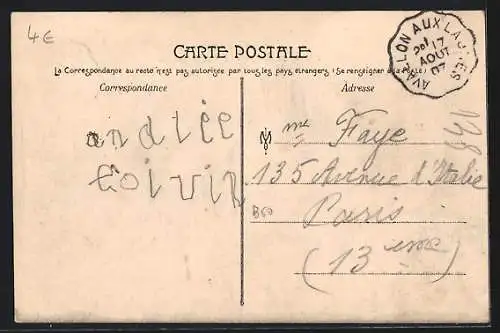 4€
CARTE POSTALE
La Correspondance au recto n'est pas autorisée par tous les pays étrangers (Se renseigner à la Poste)
Correspondance
Adresse
AVALLON AUX LAUMES
17
AOUT
07
andrée
Mme Faye
135 Avenue d'Italie
Paris
B60
(13ième)